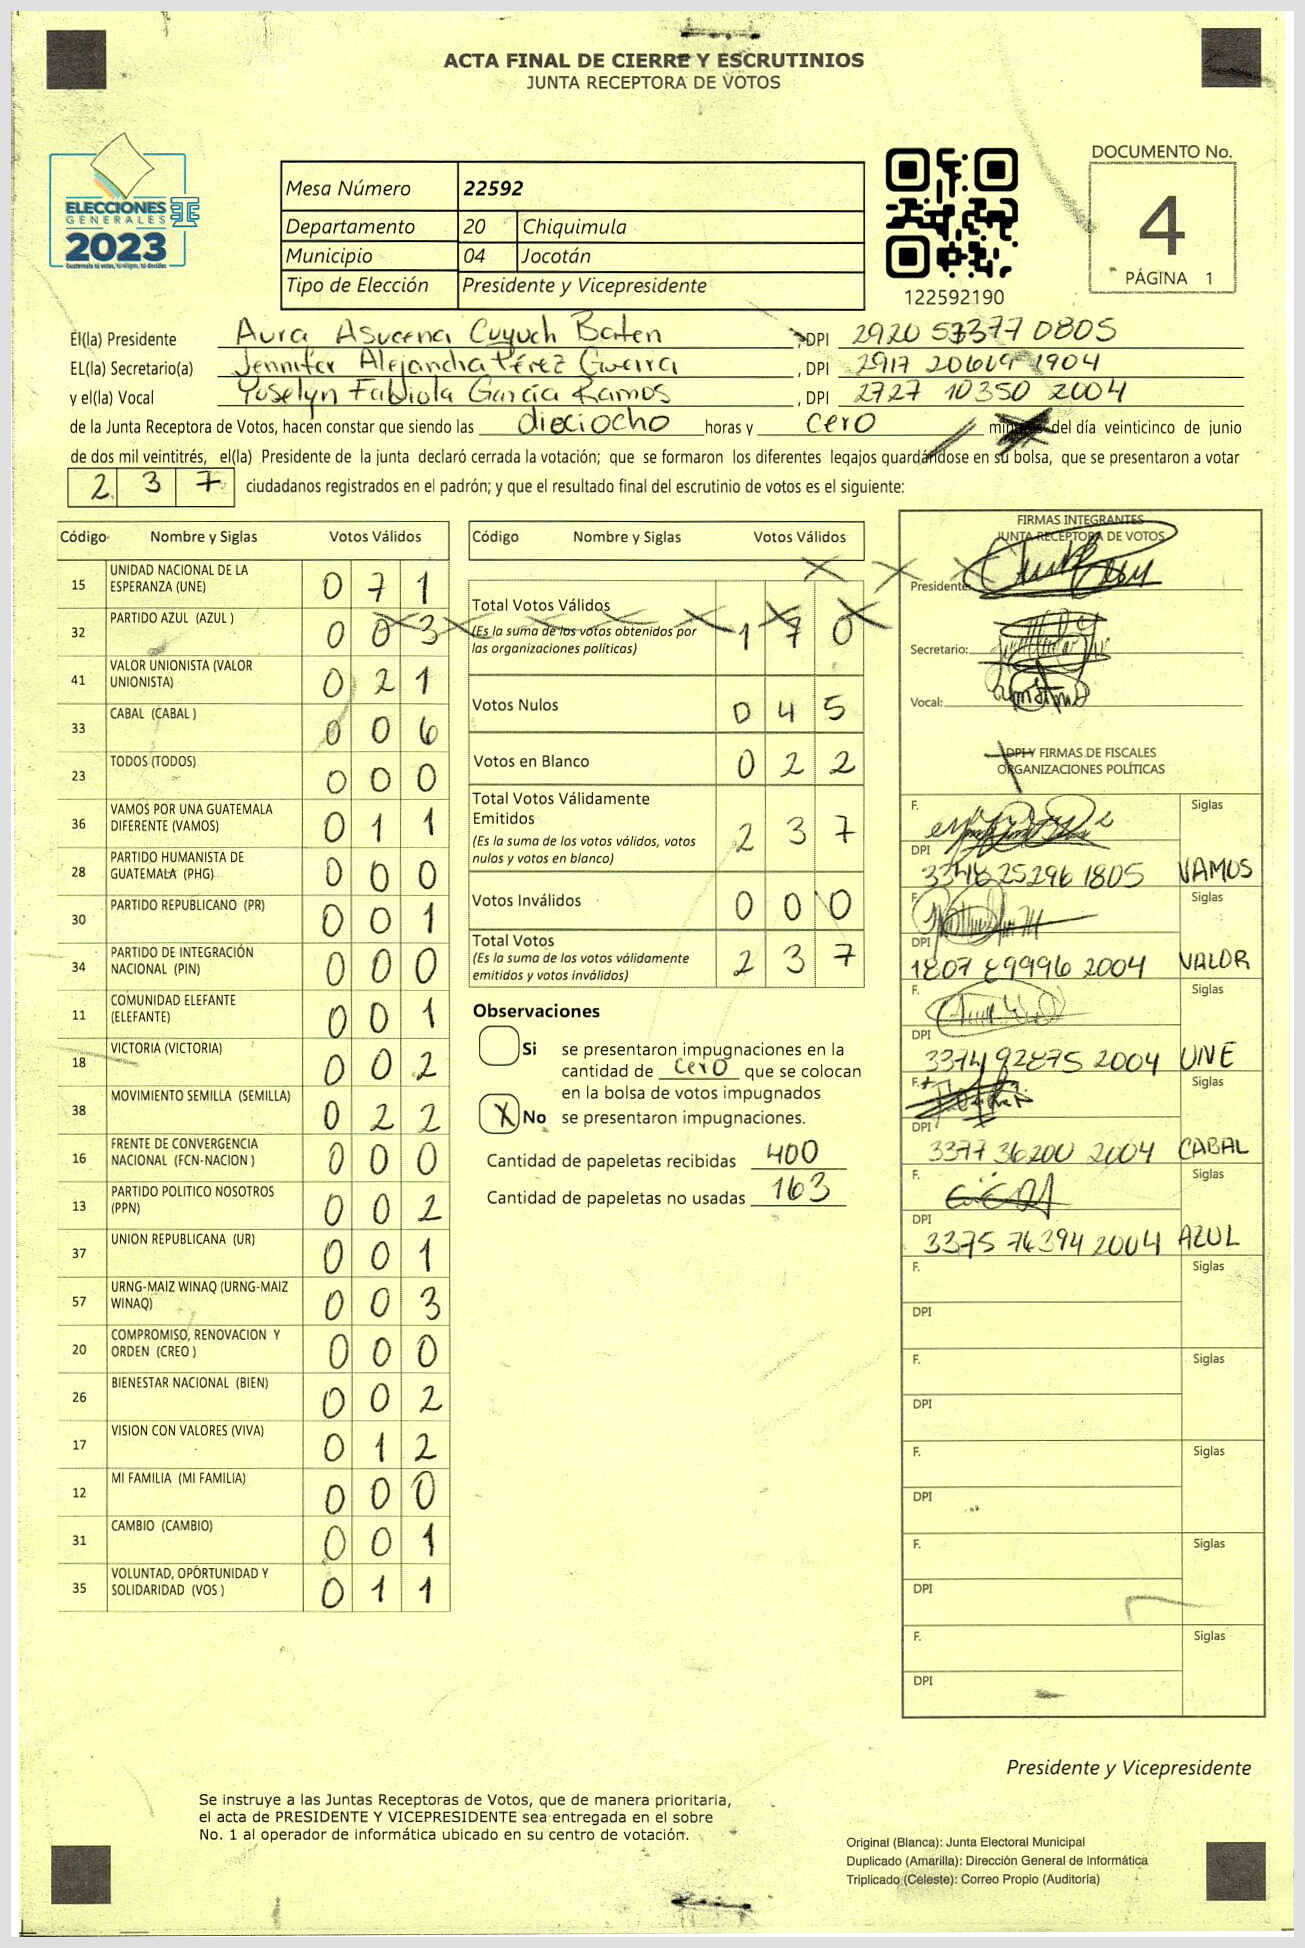 ACTA FINAL DE CIERRE Y ESCRUTINIOS
JUNTA RECEPTORA DE VOTOS
ELECCIONES
GENERALES
2023
Guatemala tú votas, tú eliges, tú decides
Mesa Número 22592
Departamento 20 Chiquimula
Municipio 04 Jocotán
Tipo de Elección Presidente y Vicepresidente
122592190
DOCUMENTO No.
4
PÁGINA 1
El(la) Presidente Aura Asucena Cuyuch Baten, DPI 2920 0805
EL(la) Secretario(a) Jennifer Alejandra Pérez Guerra, DPI 2917 1904
y el(la) Vocal Yoselyn Fabiola García Ramos, DPI 2727 10350 2004
de la Junta Receptora de Votos, hacen constar que siendo las dieciocho horas y cero minutos del día veinticinco de junio
de dos mil veintitrés, el(la) Presidente de la junta declaró cerrada la votación; que se formaron los diferentes legajos quardándose en su bolsa, que se presentaron a votar
2 3 7 ciudadanos registrados en el padrón; y que el resultado final del escrutinio de votos es el siguiente:
Código Nombre y Siglas Votos Válidos
15 UNIDAD NACIONAL DE LA ESPERANZA (UNE) 0 7 1
32 PARTIDO AZUL (AZUL ) 0 0 3
41 VALOR UNIONISTA (VALOR UNIONISTA) 0 2 1
33 CABAL (CABAL ) 0 0 6
23 TODOS (TODOS) 0 0 0
36 VAMOS POR UNA GUATEMALA DIFERENTE (VAMOS) 0 1 1
28 PARTIDO HUMANISTA DE GUATEMALA (PHG) 0 0 0
30 PARTIDO REPUBLICANO (PR) 0 0 1
34 PARTIDO DE INTEGRACIÓN NACIONAL (PIN) 0 0 0
11 COMUNIDAD ELEFANTE (ELEFANTE) 0 0 1
18 VICTORIA (VICTORIA) 0 0 2
38 MOVIMIENTO SEMILLA (SEMILLA) 0 2 2
16 FRENTE DE CONVERGENCIA NACIONAL (FCN-NACION ) 0 0 0
13 PARTIDO POLITICO NOSOTROS (PPN) 0 0 2
37 UNION REPUBLICANA (UR) 0 0 1
57 URNG-MAIZ WINAQ (URNG-MAIZ WINAQ) 0 0 3
20 COMPROMISO, RENOVACION Y ORDEN (CREO ) 0 0 0
26 BIENESTAR NACIONAL (BIEN) 0 0 2
17 VISION CON VALORES (VIVA) 0 1 2
12 MI FAMILIA (MI FAMILIA) 0 0 0
31 CAMBIO (CAMBIO) 0 0 1
35 VOLUNTAD, OPÓRTUNIDAD Y SOLIDARIDAD (VOS ) 0 1 1
Código Nombre y Siglas Votos Válidos
Total Votos Válidos 1 7 0
(Es la suma de los votos obtenidos por
las organizaciones políticas)
Votos Nulos 0 4 5
Votos en Blanco 0 2 2
Total Votos Válidamente
Emitidos 2 3 7
(Es la suma de los votos válidos, votos
nulos y votos en blanco)
Votos Inválidos 0 0 0
Total Votos 2 3 7
(Es la suma de los votos válidamente
emitidos y votos inválidos)
Observaciones
Si se presentaron impugnaciones en la
cantidad de cero que se colocan
en la bolsa de votos impugnados
X No se presentaron impugnaciones.
Cantidad de papeletas recibidas 400
Cantidad de papeletas no usadas 163
FIRMAS INTEGRANTES
JUNTA RECEPTORA DE VOTOS
Presidente:
Secretario:
Vocal:
DPI Y FIRMAS DE FISCALES
ORGANIZACIONES POLÍTICAS
F. Siglas
DPI 3348 25296 1805 VAMOS
F. Siglas
DPI 1807 89996 2004 VALOR
F. Siglas
DPI 3374 92875 2004 UNE
F. Siglas
DPI 3377 36200 2004 CABAL
F. Siglas
DPI 3375 76394 2004 AZUL
F. Siglas
DPI
F. Siglas
DPI
F. Siglas
DPI
F. Siglas
DPI
F. Siglas
DPI
Presidente y Vicepresidente
Se instruye a las Juntas Receptoras de Votos, que de manera prioritaria,
el acta de PRESIDENTE Y VICEPRESIDENTE sea entregada en el sobre
No. 1 al operador de informática ubicado en su centro de votación.
Original (Blanca): Junta Electoral Municipal
Duplicado (Amarilla): Dirección General de Informática
Triplicado (Celeste): Correo Propio (Auditoría)